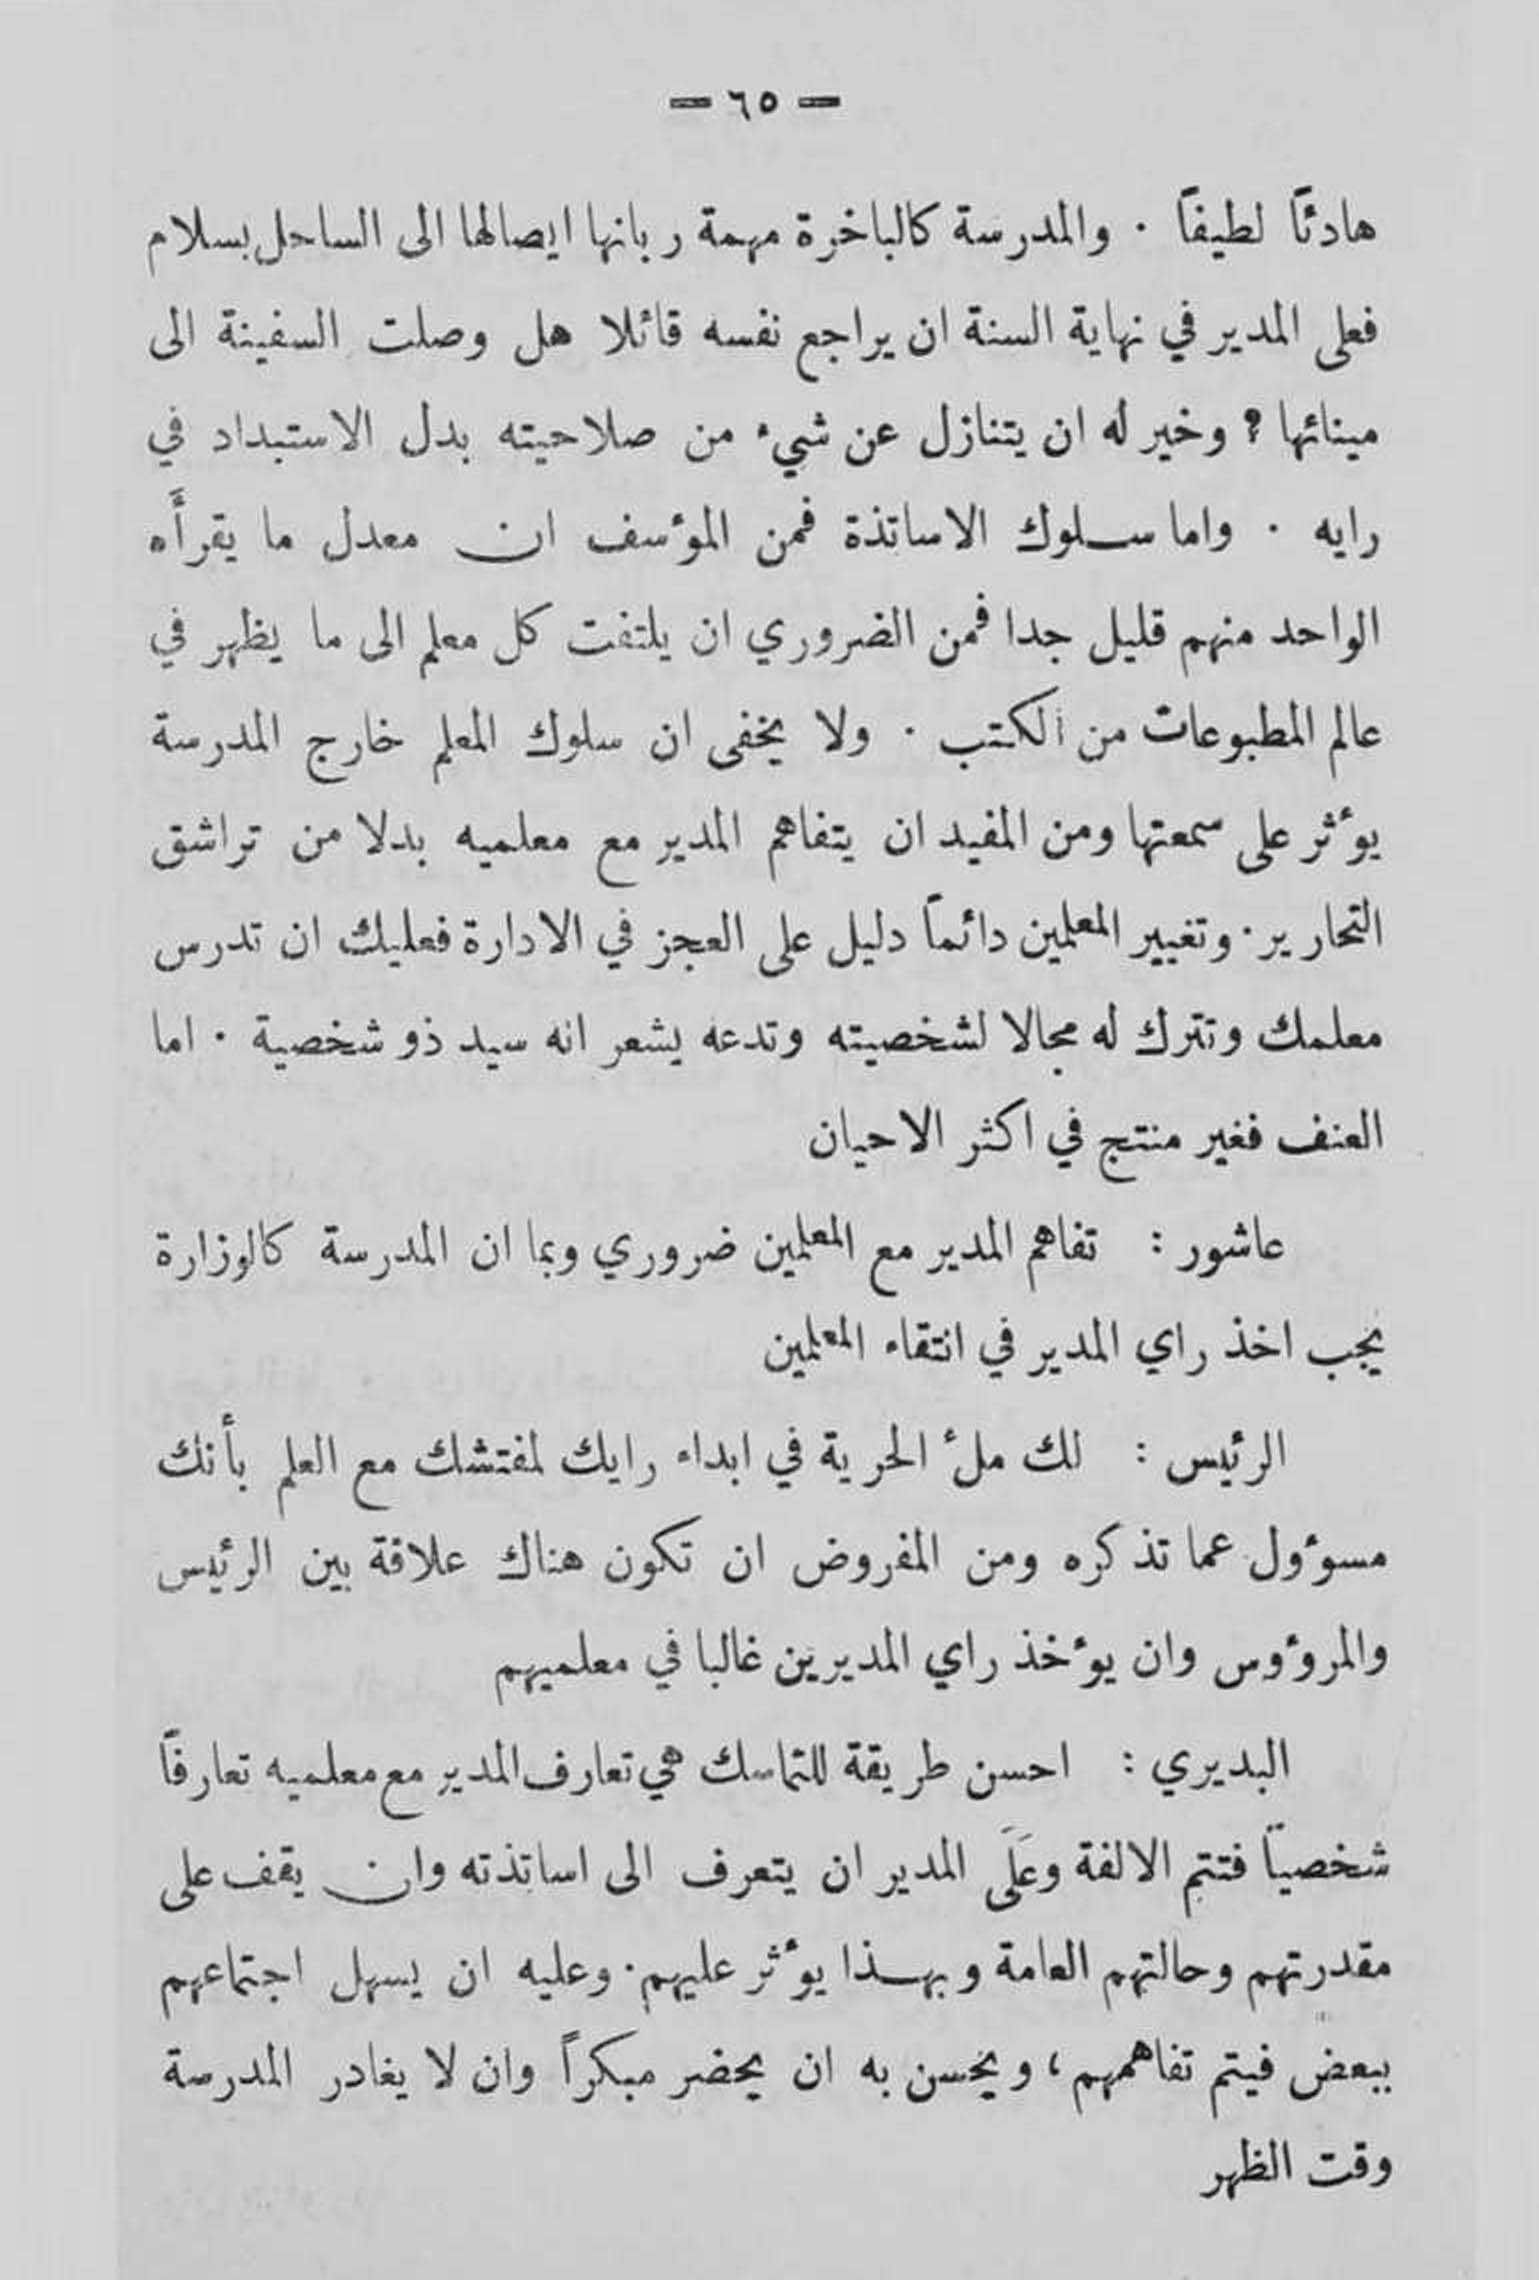 — ٦٥ —
هادئاً لطيفاً . والمدرسة كالباخرة مهمة ربانها ايصالها الى الساحل بسلام
فعلى المدير في نهاية السنة ان يراجع نفسه قائلا هل وصلت السفينة الى
مينائها ؟ وخير له ان يتنازل عن شيء من صلاحيته بدل الاستبداد في
رايه . واما سلوك الاساتذة فمن المؤسف ان معدل ما يقرأَه
الواحد منهم قليل جدا فمن الضروري ان يلتفت كل معلم الى ما يظهر في
عالم المطبوعات من الكتب . ولا يخفى ان سلوك المعلم خارج المدرسة
يؤثر على سمعتها ومن المفيد ان يتفاهم المدير مع معلميه بدلا من تراشق
التحارير . وتغيير المعلمين دائماً دليل على العجز في الادارة فعليك ان تدرس
معلمك وتترك له مجالا لشخصيته وتدعه يشعر انه سيد ذو شخصية . اما
العنف فغير منتج في اكثر الاحيان
عاشور : تفاهم المدير مع المعلمين ضروري وبما ان المدرسة كالوزارة
يجب اخذ راي المدير في انتقاء المعلمين
الرئيس : لك ملأ الحرية في ابداء رايك لمفتشك مع العلم بأنك
مسوؤل عما تذكره ومن المفروض ان تكون هناك علاقة بين الرئيس
والمرؤوس وان يؤخذ راي المديرين غالبا في معلميهم
البديري : احسن طريقة للتماسك هي تعارف المدير مع معلميه تعارفاً
شخصياً فتتم الالفة وعَلَى المدير ان يتعرف الى اساتذته وان يقف على
مقدرتهم وحالتهم العامة وبهذا يؤثر عليهم . وعليه ان يسهل اجتماعهم
ببعض فيتم تفاهمهم ، ويحسن به ان يحضر مبكراً وان لا يغادر المدرسة
وقت الظهر